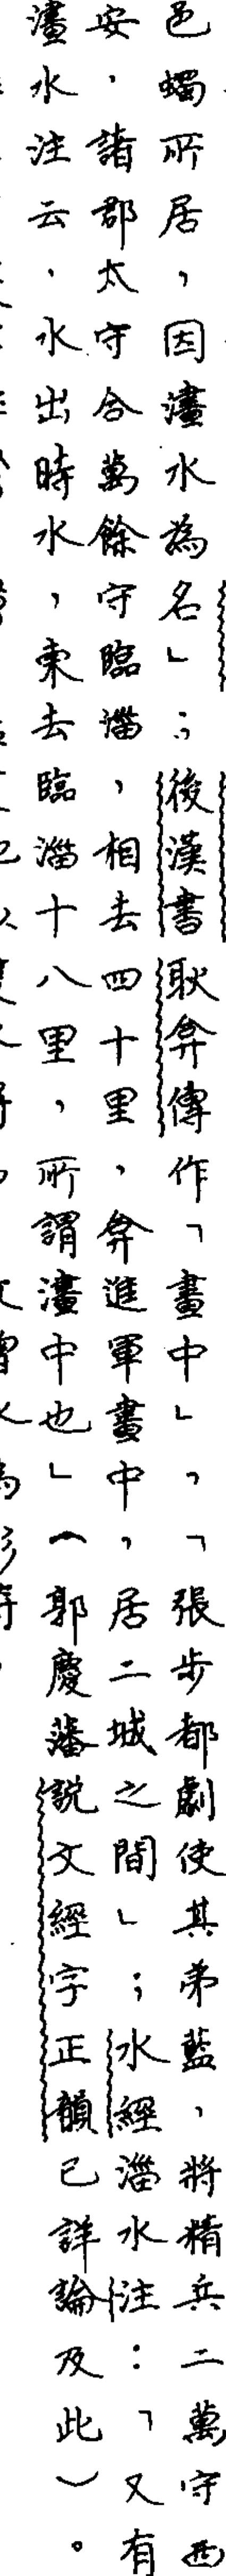 邑蠋所居，因澅水為名」；後漢書耿弇傳作「畫中」，「張步都劇使其弟藍，將精兵二萬守西
安，諸郡太守合萬餘守臨淄，相去四十里，弇進軍畫中，居二城之間」；水經淄水注：「又有
澅水注云，水出時水，東去臨淄十八里，所謂澅中也」（郭慶藩說文經字正韻已詳論及此）。